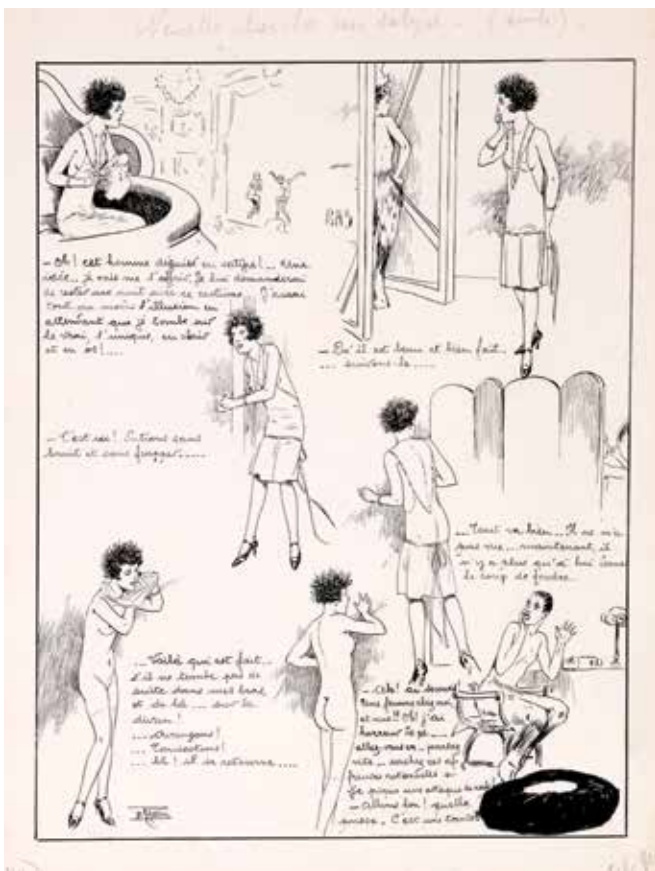 Nénette cherche un satyre. (suite).
– Oh! cet homme déguisé en satyre!... Une
idée... je vais me l'offrir. Je lui demanderai
de rester une nuit avec ce costume. J'aurai
tout au moins l'illusion en
attendant que je tombe sur
le vrai, l'unique, en chair
et en os!....
– Qu'il est beau et bien fait..
... suivons-le.....
– C'est ici! Entrons sans
bruit et sans frapper.....
... Tout va bien... Il ne m'a
pas vue... maintenant, il
n'y a plus qu'à lui
le coup de foudre.
... Voilà qui est fait..
s'il ne tombe pas de
suite dans mes bras
et de là... sur le
divan!
... Avançons!
... Toussotons!
... Ah! il se retourne....
– Ah! au secours
Une femme chez moi
et nue!! Oh! j'ai
horreur de ça....
allez-vous-en... partez
vite... cachez ces
je pique une attaque de nerfs!
– Allons bon! quelle
C'est une